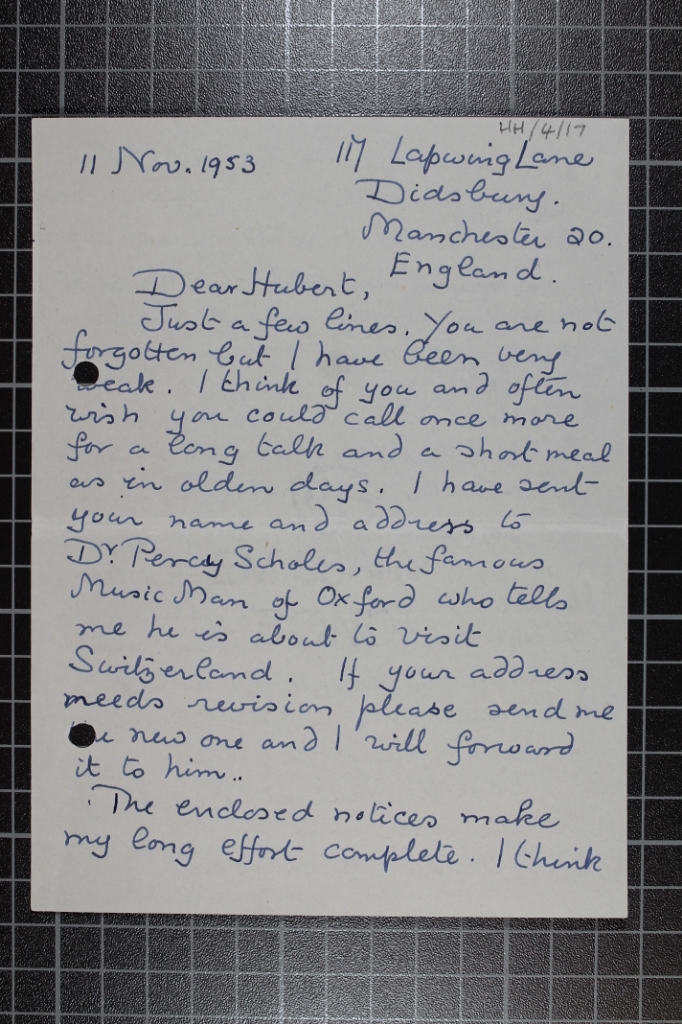 HH/4/17
11 Nov. 1953
117 Lapwing Lane
Didsbury.
Manchester 20.
England.
Dear Hubert,
Just a few lines. You are not
forgotten but I have been very
weak. I think of you and often
wish you could call once more
for a long talk and a short meal
as in olden days. I have sent
your name and address to
Dr. Percy Scholes, the famous
Music Man of Oxford who tells
me he is about to visit
Switzerland. If your address
needs revision please send me
the new one and I will forward
it to him..
The enclosed notices make
my long effort complete. I think